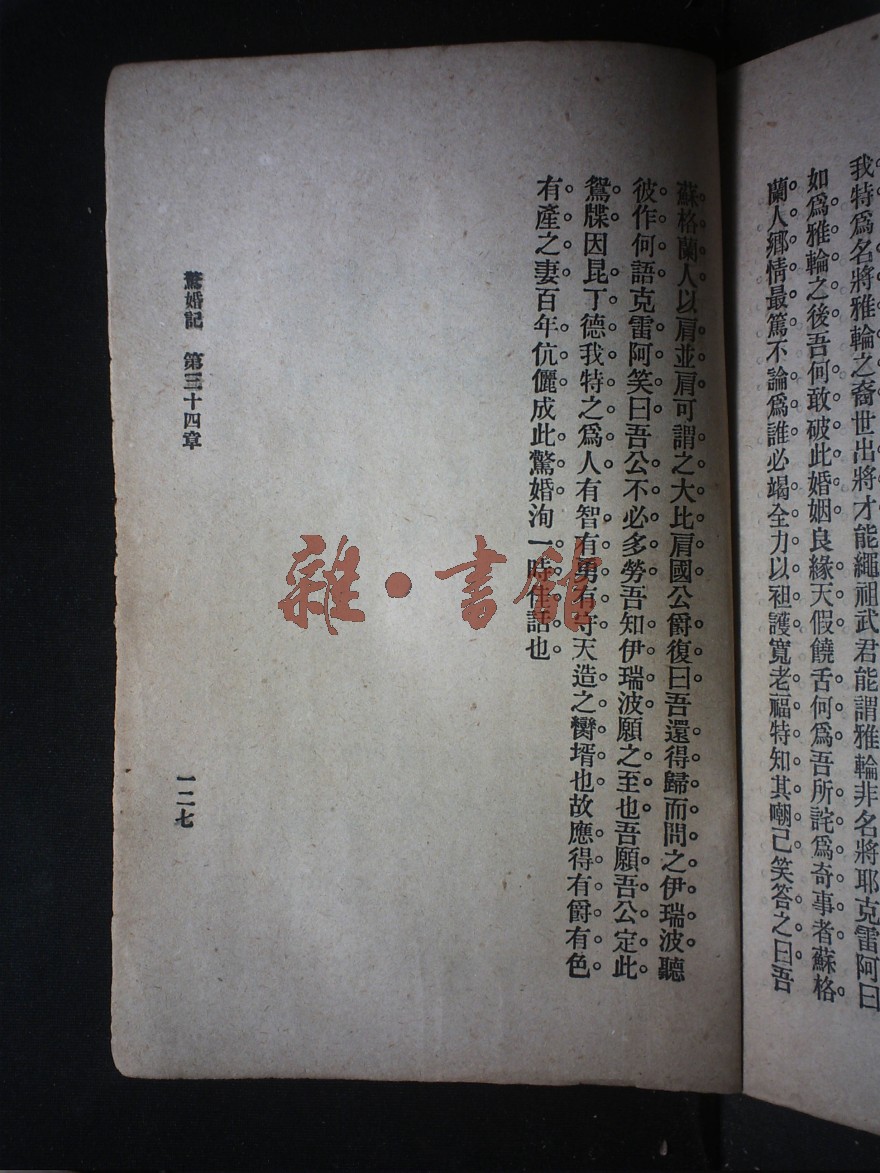 我特爲名將雅輪之裔世出將才能繩祖武君能謂雅輪非名將耶克雷阿曰
如爲雅輪之後吾何敢破此婚姻良緣天假饒舌何爲吾所詫爲奇事者蘇格
蘭人鄉情最篤不論爲誰必竭全力以袒護寬老福特知其嘲己笑答之曰吾
蘇格蘭人以肩並肩可謂之大比肩國公爵復曰吾還得歸而問之伊瑞波聽
彼作何語克雷阿笑曰吾公不必多勞吾知伊瑞波願之至也吾願吾公定此
鴛牒因昆丁德我特之爲人有智有勇有守天造之嬌壻也故應得有爵有色
有產之妻百年伉儷成此驚婚洵一時佳話也
驚婚記 第三十四章
一二七
雜·書館